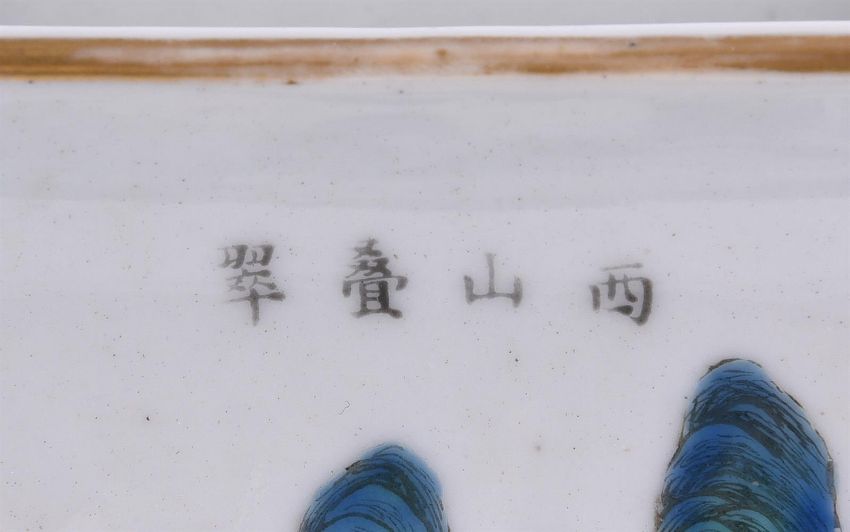 西山叠翠